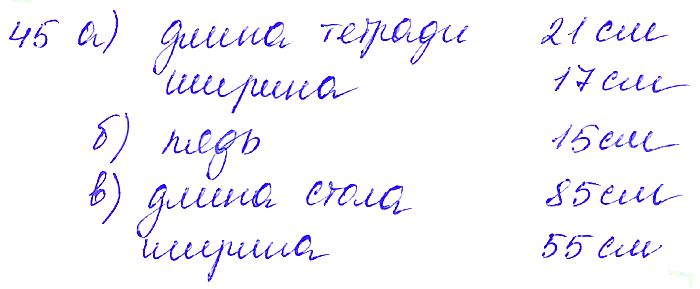 45 а) длина тетради 21 см
ширина 17 см
б) пядь 15 см
в) длина стола 85 см
ширина 55 см